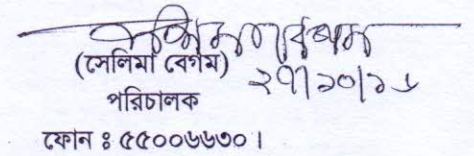 সেলিমা বেগম
(সেলিমা বেগম)
২৭/১০/১৬
পরিচালক
ফোন ঃ ৫৫০০৬৬৩০।